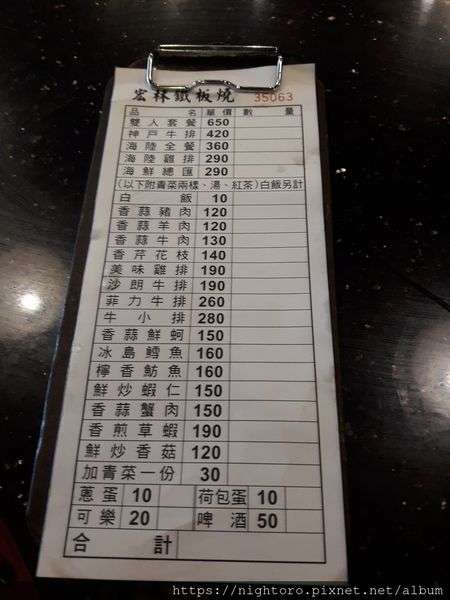 宏林鐵板燒 35063
品名 單價 數量
雙人套餐 650
神戶牛排 420
海陸全餐 360
海陸雞排 290
海鮮總匯 290
(以下附青菜兩樣、湯、紅茶)白飯另計
白飯 10
香蒜豬肉 120
香蒜羊肉 120
香蒜牛肉 130
香芹花枝 140
美味雞排 190
沙朗牛排 190
菲力牛排 260
牛小排 280
香蒜鮮蚵 150
冰島鱈魚 160
檸香魴魚 160
鮮炒蝦仁 150
香蒜蟹肉 150
香煎草蝦 190
鮮炒香菇 120
加青菜一份 30
蔥蛋 10 荷包蛋 10
可樂 20 啤酒 50
合計
https://nightoro.pixnet.net/album